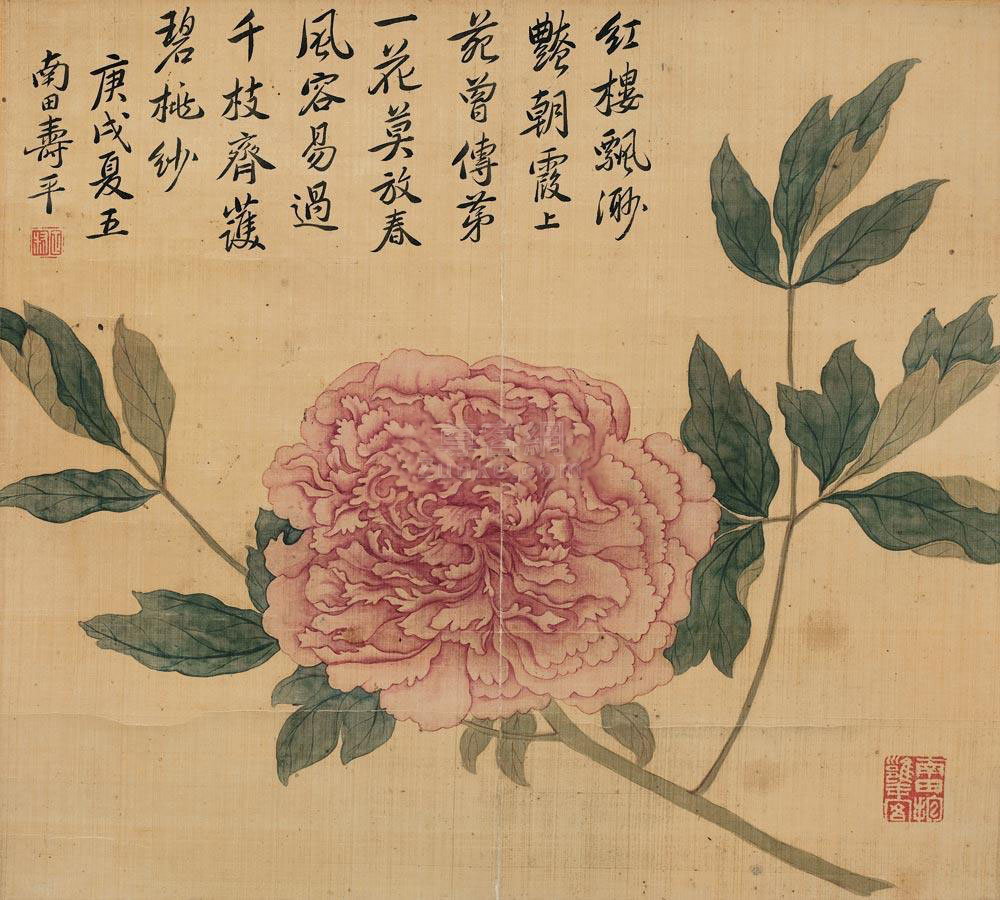 紅樓飄渺
艷朝霞上
苑曾傳第
一花莫放春
風容易過
千枝齊護
碧桃紗
庚戌夏五
南田壽平